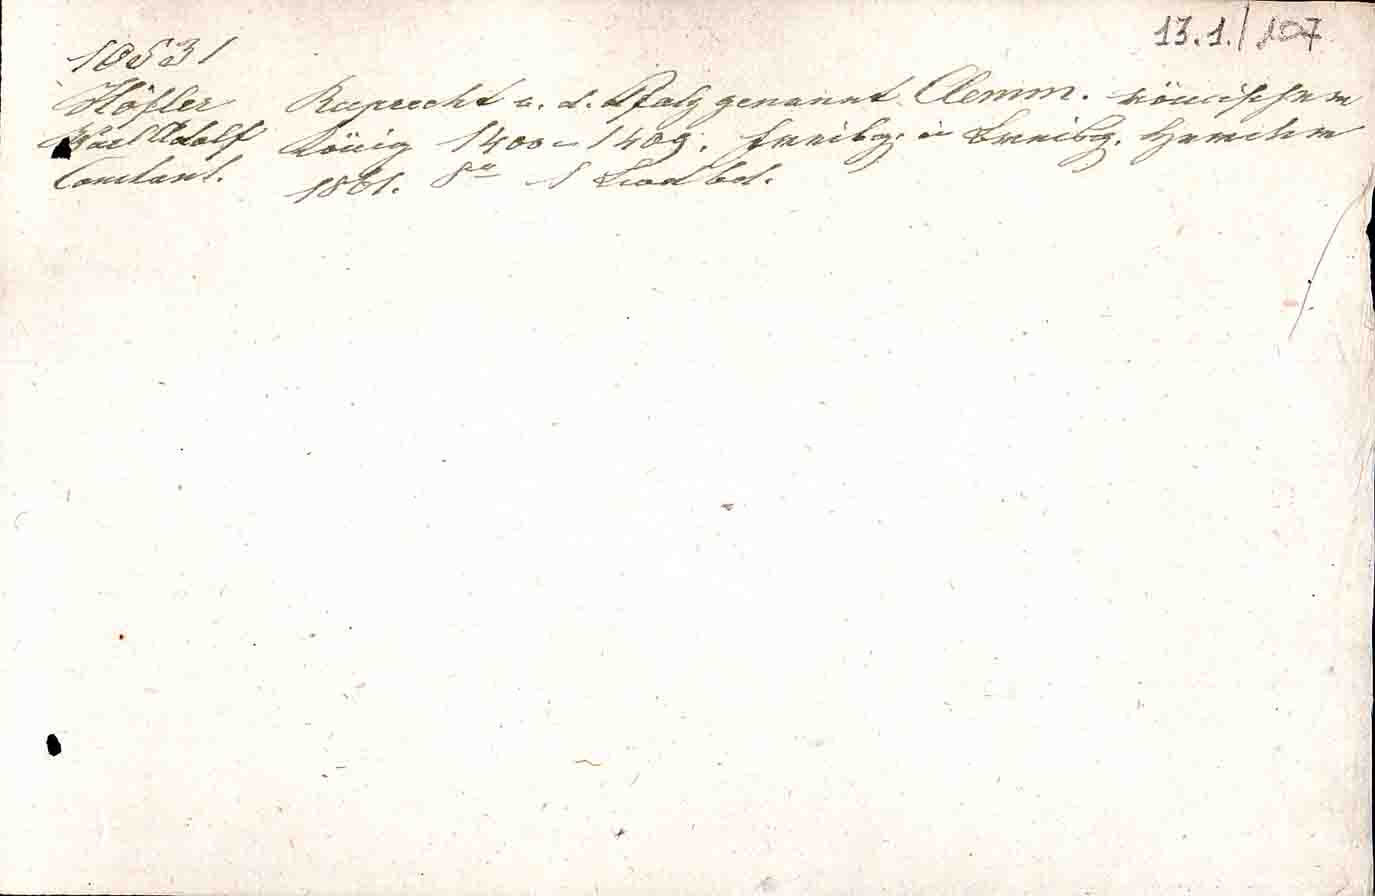 13.1./107
10531
Höfler Ruprecht v. d. Pfalz genannt Clemm. römischer
Karl Adolf König 1400–1409. Freibg. in Breisg. Herder
Constant. 1861. 8° 1 Lwdbd.